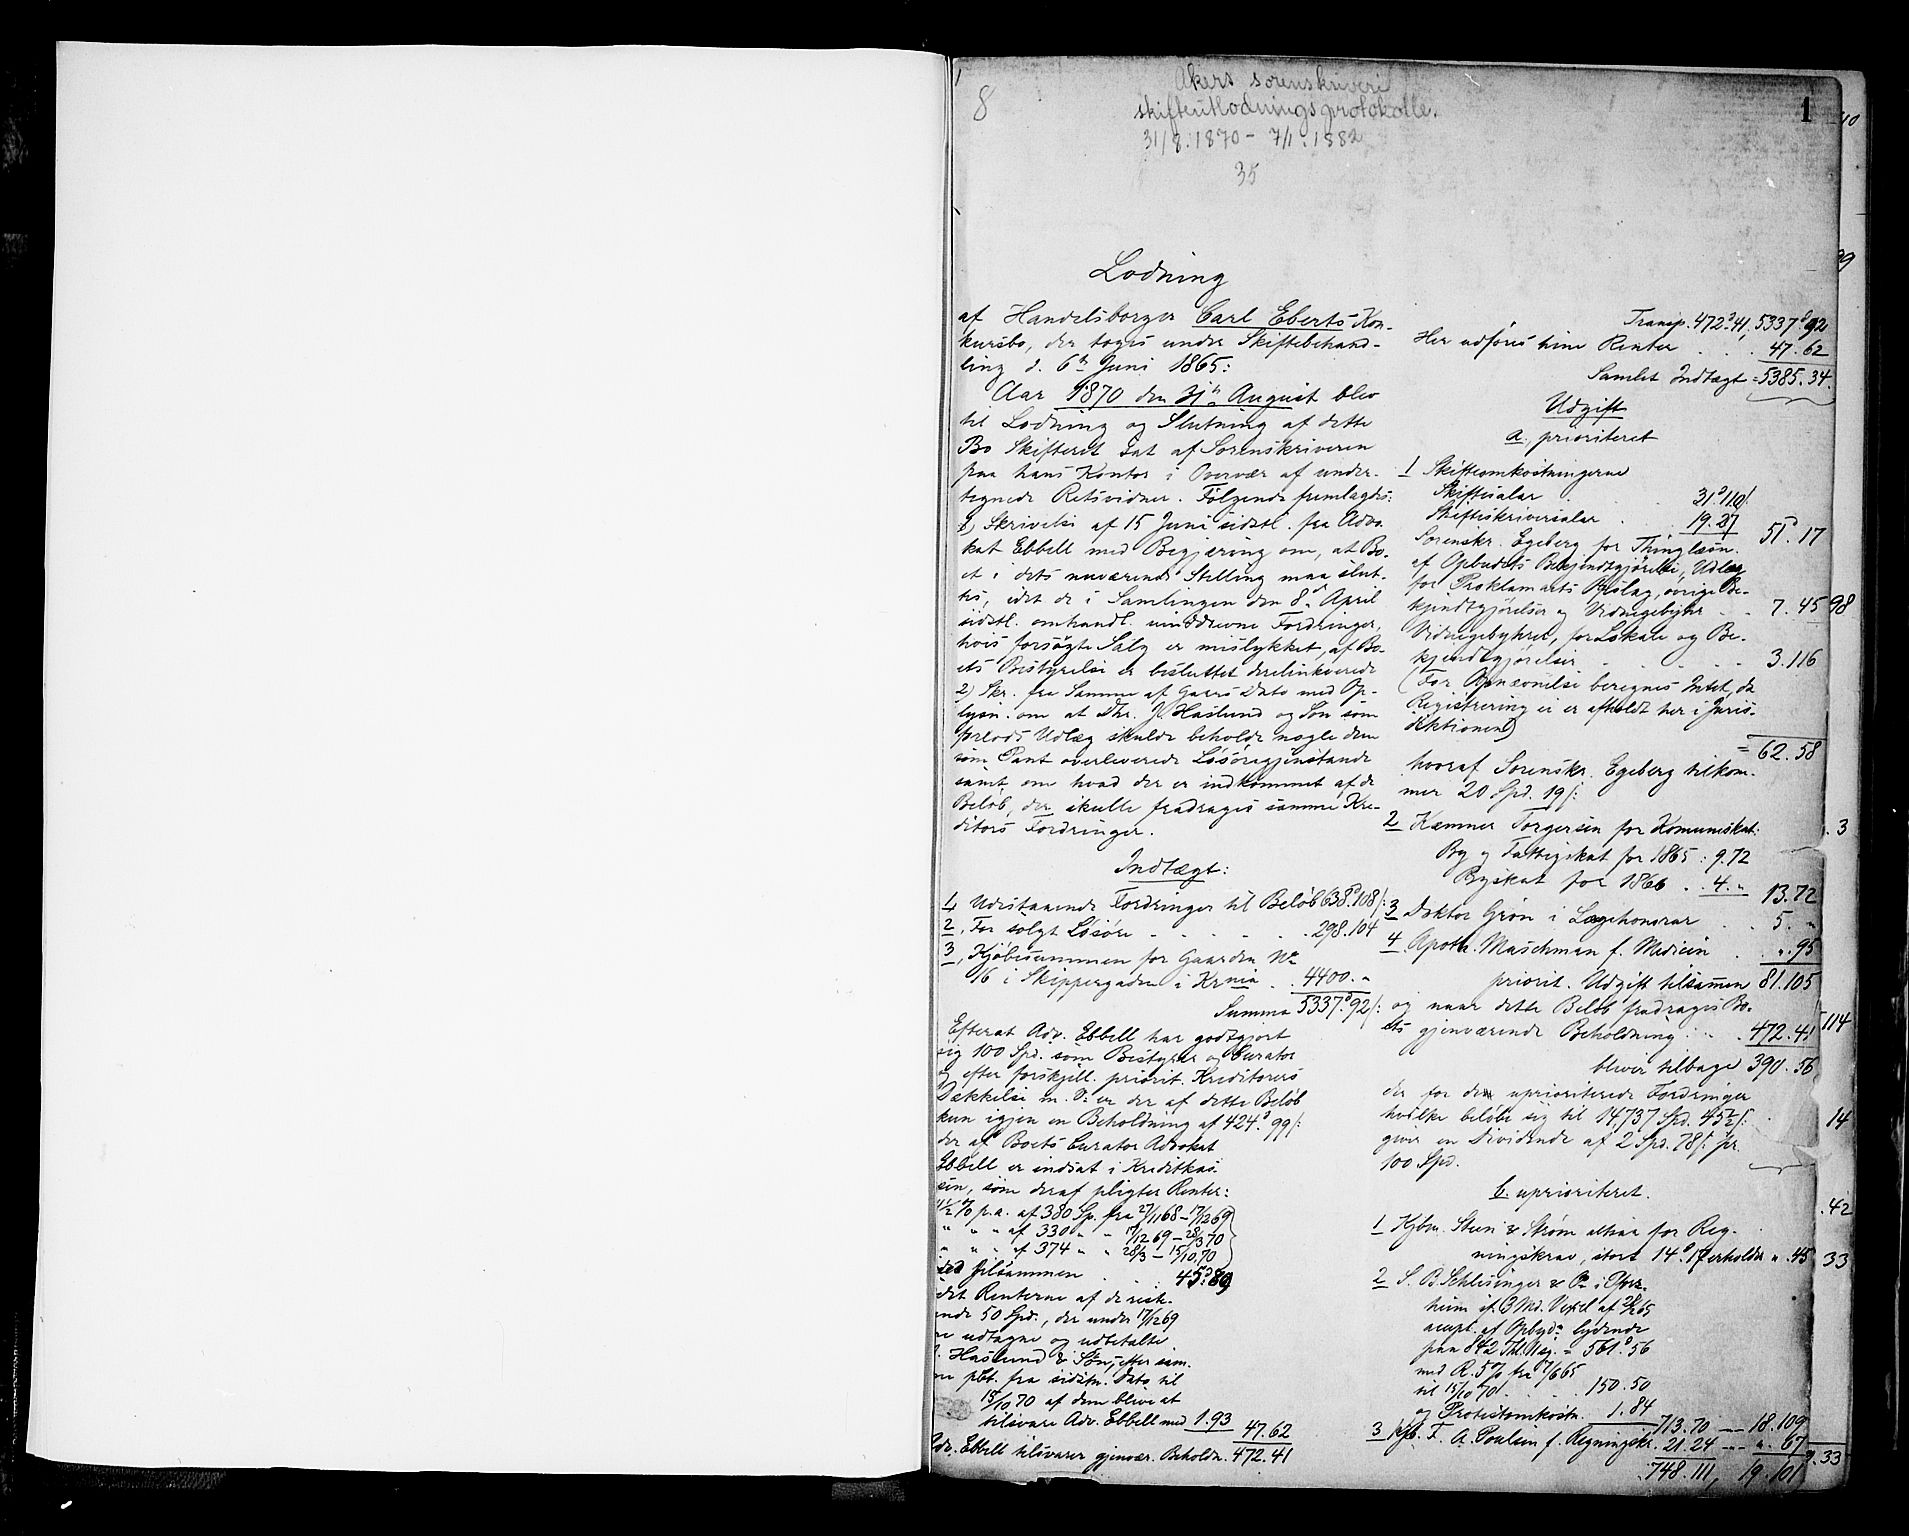 8
1
Akers sorenskriveri
skifteutlodningsprotokolle.
31/8.1870 - 7/1.1882
35
Lodning
af Handelsborger Carl Eberts Kon-
kursbo, der toges under Skiftebehand-
ling d. 6te Juni 1865:
Aar 1870 den 31te August blev
til Lodning og Slutning af dette
Bo Skifteret sat af Sorenskriveren
paa hans Kontor i Overvær af under-
tegnede Retsvidner. Følgende fremlagdes:
1) Skrivelse af 15 Juni sidstl. fra Advo-
kat Ebbell med Begjæring om, at Bo-
et i dets nuværende Stilling maa slut-
tes, idet de i Samlingen den 8de April
sidstl. omhandl. uinddrevne Fordringer,
hvis forsøgte Salg er mislykket, af Bo-
ets Bestyrelse er besluttet derelinkverede
2) Skr. fra Samme af Gaars Dato med Op-
lysn. om at Dhr. J. Haslund og Søn som
preods Udlæg skulde beholde nogle dem
som Pant overleverede Løsøregjenstande
samt om hvad der er indkommet af de
Beløb, der skulle fradrages samme Kre-
ditors Fordringer.
Indtægt:
1, Udestaaende Fordringer til Beløb 638.108/:
2, For solgt Løsøre . . . . . 298.104
3, Kjøbesummen for Gaarden No
16 i Skippergaden i Krnia . . 4400. "
Summa 5337.92/:
Efterat Adv. Ebbell har godtgjort
sig 100 Spd. som Bestyrer og Curator
og efter forskjell. priorit. Kreditorers
Dækkelse m. V. er der af dette Beløb
kun igjen en Beholdning af 424.99/:
der af Boets Curator Advokat
Ebbell er indsat i Kreditkas-
sen, som deraf pligter Renter:
4½ % p.a. af 380 Sp. fra 27/11 68 - 17/12 69
" " " af 330 " " 17/12 69 - 28/3 70
" " " af 374 " " 28/3 - 15/10 70
med tilsammen . . . 45.89
idet Renterne af de rest-
ende 50 Spd., der under 17/12 69
ere udtagne og udbetalte
J. Haslund & Søn, efter sam-
me pCt. fra sidstn. Dato til
15/10 70 af dem blive at
tilsvare Adv. Ebbell med 1.93 47.62
Adv. Ebbell tilsvarer gjenvær. Beholdn. 472.41
Transp. 472.41, 5337.92
Her udføres hine Renter . . . 47.62
Samlet Indtægt = 5385.34.
Udgift
a, prioriteret
1 Skifteomkostningerne
Skiftesalar . . . 31.110/:
Skifteskriversalar . 19.27 51.17
Sorenskr. Egeberg for Thinglæsn.
af Opbudets Bekjendtgjørelse, Udlæg
for Proklamaets Opslag, øvrige Be-
kjendtgjørelser og Vidnegebyhr . . 7.45
Vidnegebyhrer, for Lokale og Be-
kjendtgjørelser . . . . . 3.116
(For Opnævnelse beregnes Intet, da
Registrering ei er afholdt her i Juris-
diktionen)
= 62.58
hvoraf Sorenskr. Egeberg tilkom-
mer 20 Spd. 19/:
2 Kæmner Torgersen for Komuneskat:
By og Fattigskat for 1865 : 9.72
Byskat for 1866 . . 4. " 13.72
3 Doktor Grøn i Lægehonorar . . 5. "
4. Apoth. Maschman f. Medicin . . ".95
priorit. Udgift tilsamen 81.105
og naar dette Beløb fradrages Bo-
ets gjenværende Beholdning . . 472.41
bliver tilbage 390.56
der for de uprioriterede Fordringer
hvilke beløbe sig til 14,737 Spd. 45½/:
giver en Dividende af 2 Spd. 78/: pr.
100 Spd.
b. uprioriteret.
1 Kjbm. Steen & Strøm altsaa for Reg-
ningskrav, stort 14.17 erholder ".45
2 S. B. Schlesinger & Co i
heim if. 3 Md. Vexel af 28/2 65
acept. af Opbydn lydende
paa 842 Thl. = 561.56
med R. 5% fra 1/6 65
til 15/10 70 . . . 150.50
og Protestomkostn. 1.84 713.70 — 18.109
3 Kjb. F. A. Poulsen f. Regningskr. 21.24 — ".67
748.111, 19.101
40
39
98
3
114
14
.42
33
9.33